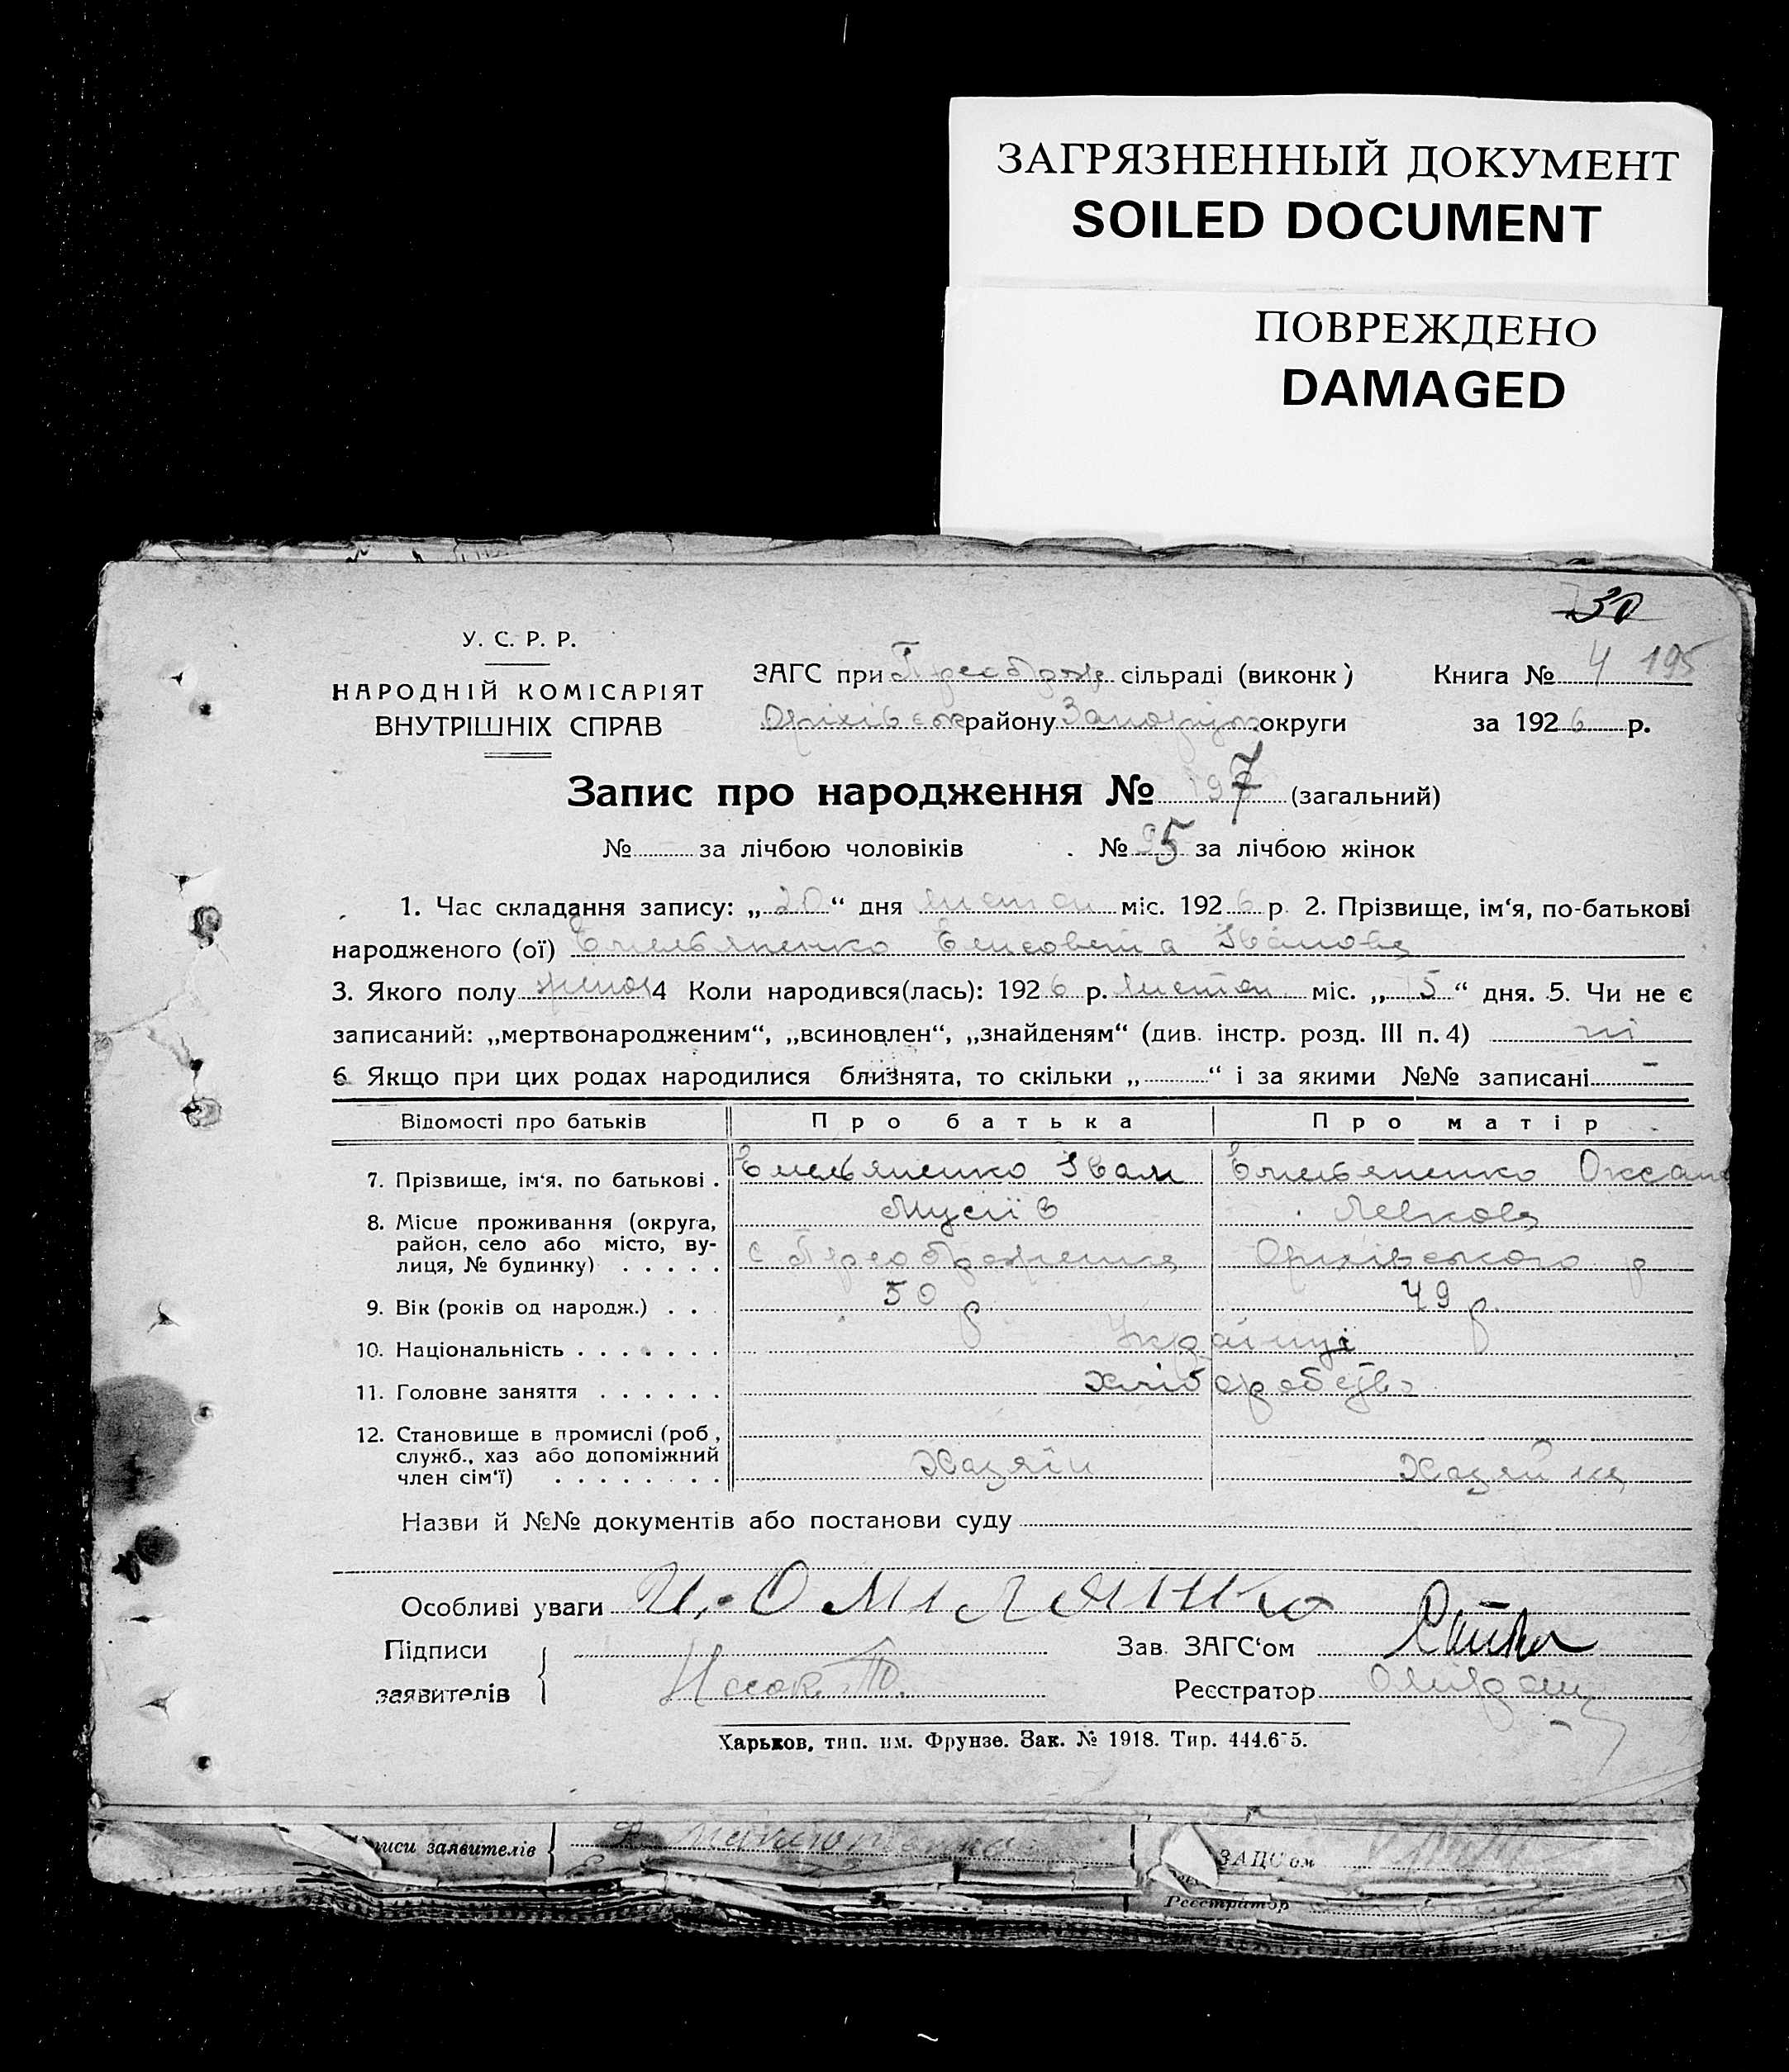 ЗАГРЯЗНЕННЫЙ ДОКУМЕНТ
SOILED DOCUMENT
ПОВРЕЖДЕНО
DAMAGED
30
У. С. Р. Р.
НАРОДНІЙ КОМІСАРІЯТ
ВНУТРІШНІХ СПРАВ
ЗАГС при Преображ сільраді (виконк)
Оріхівськ району Запоріж округи
Книга № 4 195
за 1926 р.
Запис про народження № 197 (загальний)
№ за лічбою чоловіків № 95 за лічбою жінок
1. Час складання запису: „20“ дня листоп міс. 1926 р 2. Прізвище, ім‘я, по-батькові
народженого (ої) Емельяненко Елисовета Іванова
3. Якого полу жіноч 4 Коли народився(лась): 1926 р. листоп міс. „15“ дня. 5. Чи не є
записаний: „мертвонародженим“, „всиновлен“, „знайденям“ (див. інстр. розд. III п. 4) ні
6 Якщо при цих родах народилися близнята, то скільки „ “ і за якими №№ записані –
Відомості про батьків Про батька Про матір
7. Прізвище, ім‘я, по батькові . Емельяненко Іван Емельяненко Оксана
Мусіїв Левкова
8. Місце проживання (округа,
район, село або місто, ву-
лиця, № будинку) . . . . . с Преображенка Оріхівського р
9. Вік (років од народж.) . . . 50 р 49 р.
10. Національність . . . . . . . Українці
11. Головне заняття . . . . . . хліборобство
12. Становище в промислі (роб,
служб., хаз або допоміжний
член сім‘ї) . . . . . . . . Хазяїн Хазяйка
Назви й №№ документів або постанови суду
Особливі уваги И. Омілянко
Підписи
заявителів
Зав. ЗАГС‘ом
Реєстратор
Харьков, тип. им. Фрунзе. Зак. № 1918. Тир. 444.675.
писи заявителів
ЗАГС‘ом
Реєстратор